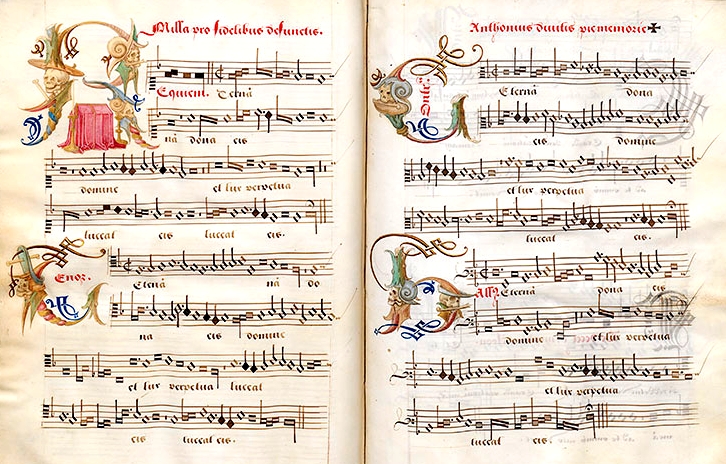 Missa pro fidelibus defunctis.
Requiem. Eternā
nā dona eis
domine et lux perpetua
luceat eis luceat eis.
Tenor.
Eternā nā do
na eis domine
et lux perpetua luceat
eis luceat eis.
Anthonius divitis pie memorie
Eternā dona
eis domine
et lux perpetua
luceat eis.
Eternā dona eis
domine et lux perpetua
et lux perpetua
luceat eis.